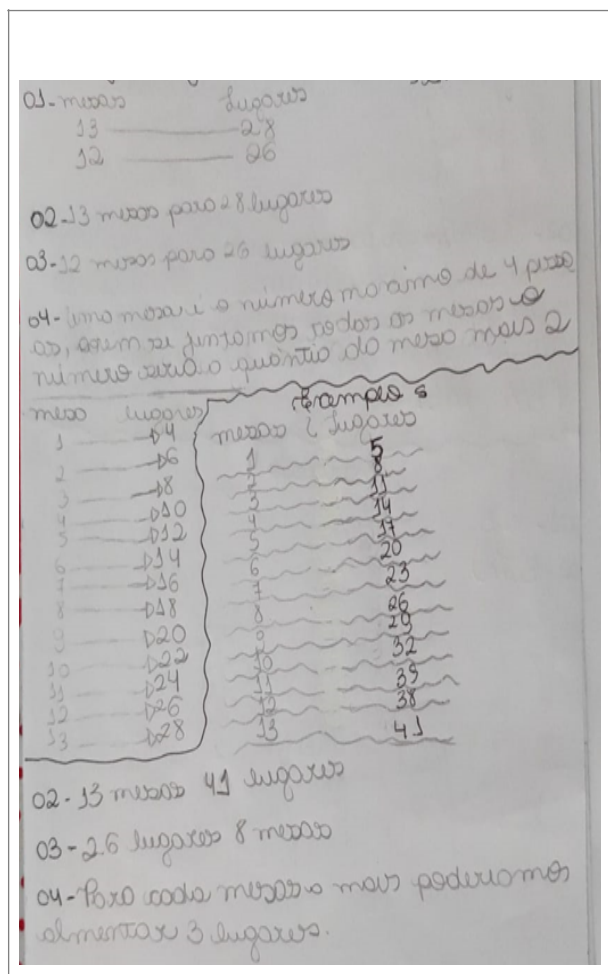 01- mesas lugares
13 28
12 26
02-13 mesas para 28 lugares
03-12 mesas para 26 lugares
04- Uma mesa é o número maximo de 4 pesso
as, se juntamos todas as mesas o
número seria o quantio da mesa mais 2
mesa lugares
1 4
2 6
3 8
4 10
5 12
6 14
7 16
8 18
9 20
10 22
11 24
12 26
13 28
Exemplo s
mesas lugares
1 5
2 8
3 11
4 14
5 17
6 20
7 23
8 26
9 29
10 32
11 35
12 38
13 41
02- 13 mesas 41 lugares
03- 26 lugares 8 mesas
04- Para cada mesas a mais poderiamos
almentar 3 lugares.